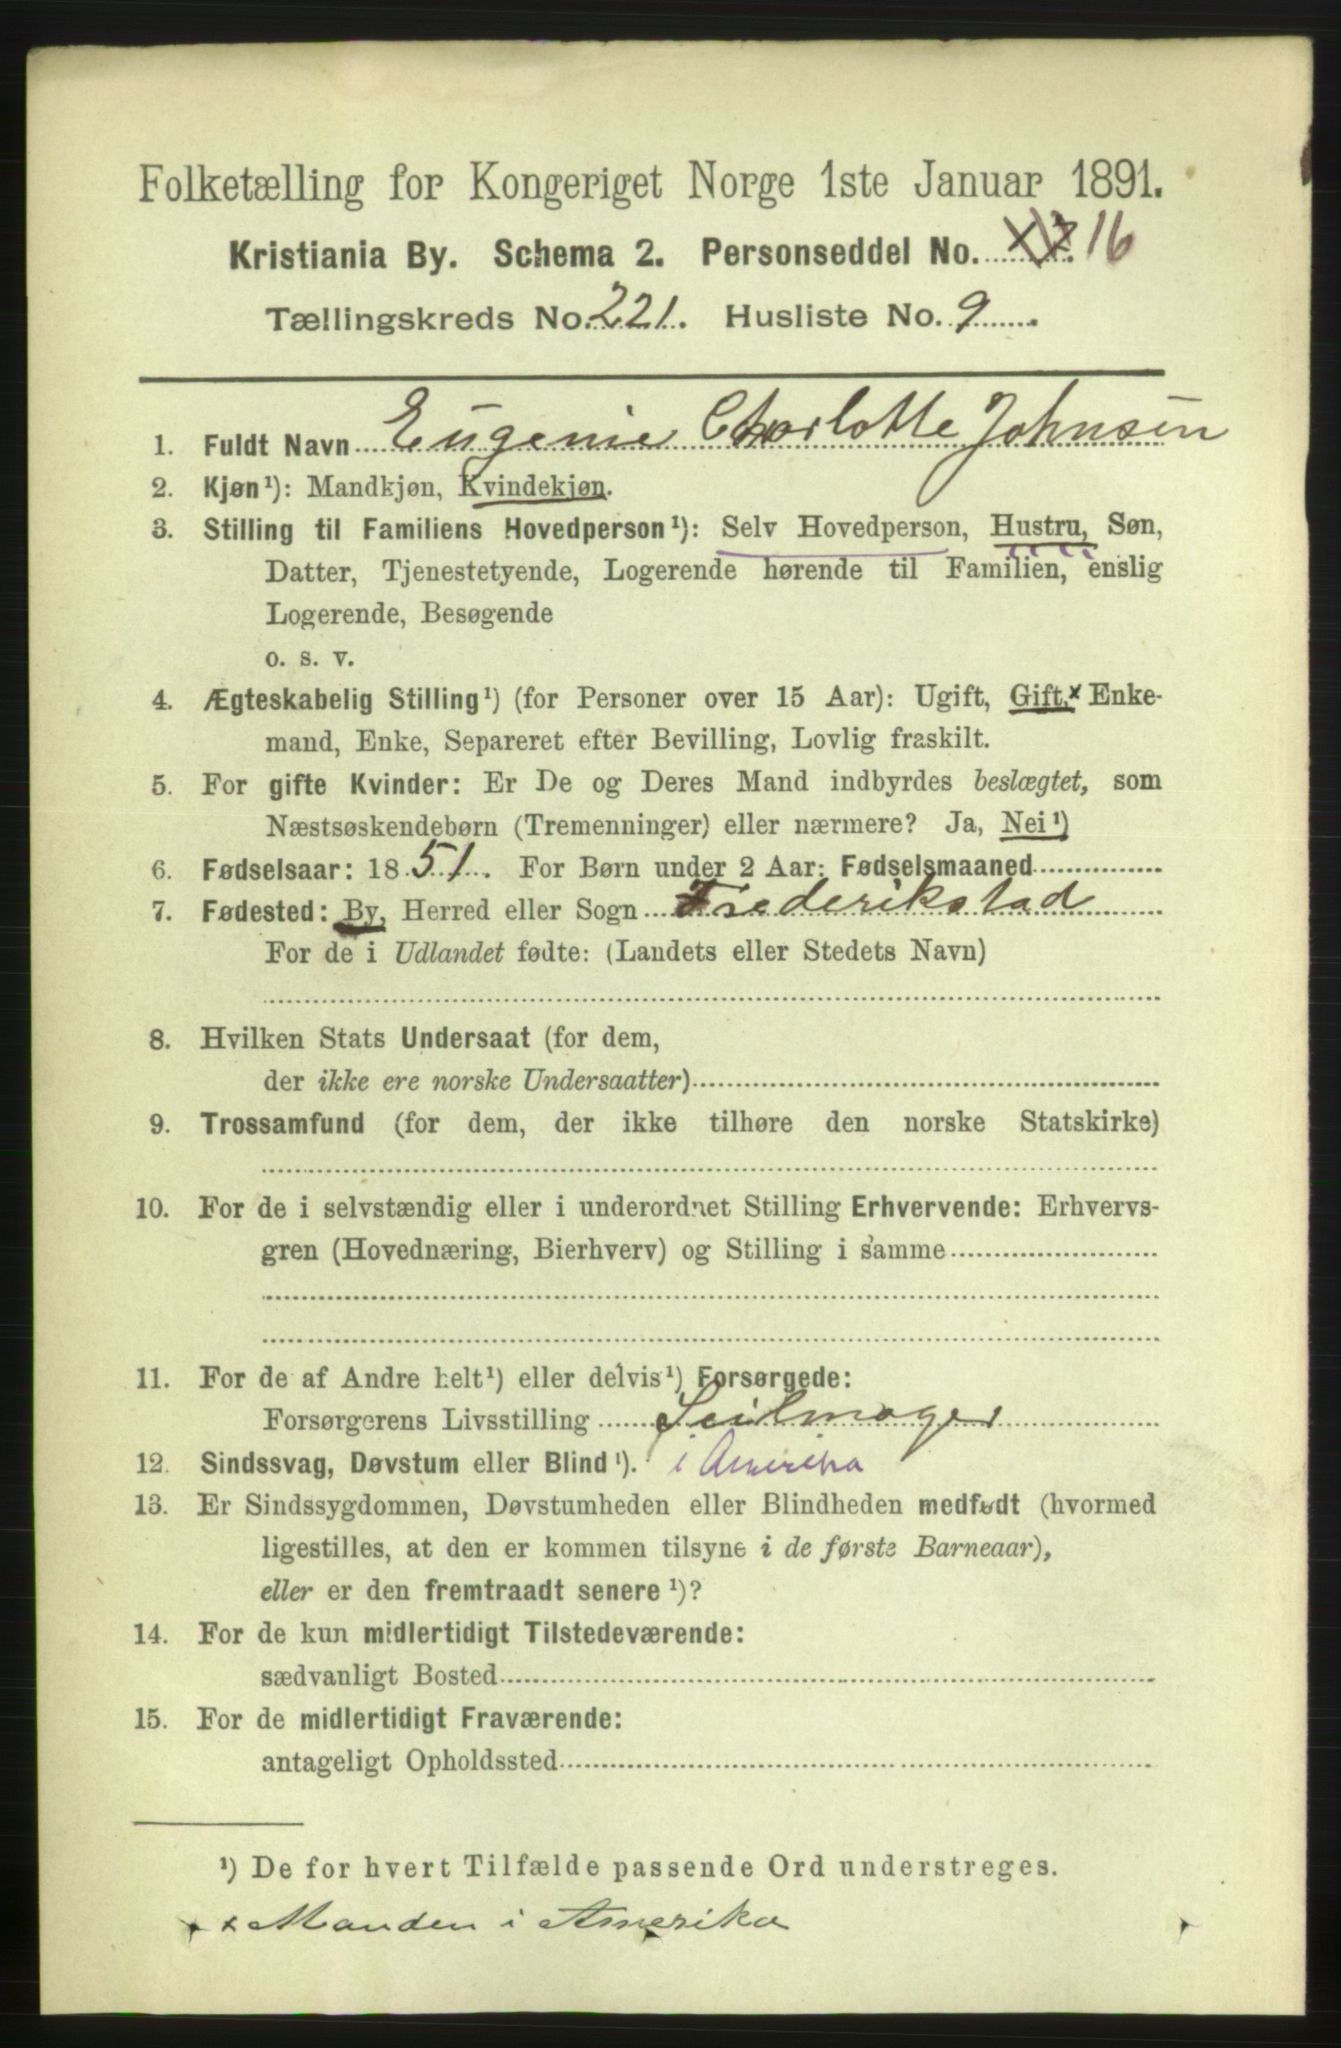 Folketælling for Kongeriget Norge 1ste Januar 1891.
Kristiania By. Schema 2. Personseddel No. 16
Tællingskreds No. 221. Husliste No. 9
1. Fuldt Navn Eugenie Charlotte Johnsen
2. Kjøn¹): Mandkjøn, Kvindekjøn.
3. Stilling til Familiens Hovedperson¹): Selv Hovedperson, Hustru, Søn,
Datter, Tjenestetyende, Logerende hørende til Familien, enslig
Logerende, Besøgende
o. s. v.
4. Ægteskabelig Stilling¹) (for Personer over 15 Aar): Ugift, Gift,x Enke-
mand, Enke, Separeret efter Bevilling, Lovlig fraskilt.
5. For gifte Kvinder: Er De og Deres Mand indbyrdes beslægtet, som
Næstsøskendebørn (Tremenninger) eller nærmere? Ja, Nei¹)
6. Fødselsaar: 1851. For Børn under 2 Aar: Fødselsmaaned
7. Fødested: By, Herred eller Sogn Frederikstad
For de i Udlandet fødte: (Landets eller Stedets Navn)
8. Hvilken Stats Undersaat (for dem,
der ikke ere norske Undersaatter)
9. Trossamfund (for dem, der ikke tilhøre den norske Statskirke)
10. For de i selvstændig eller i underordnet Stilling Erhvervende: Erhvervs-
gren (Hovednæring, Bierhverv) og Stilling i samme
11. For de af Andre helt¹) eller delvis¹) Forsørgede:
Forsørgerens Livsstilling Seilmager
12. Sindssvag, Døvstum eller Blind¹). i Amerika
13. Er Sindssygdommen, Døvstumheden eller Blindheden medfødt (hvormed
ligestilles, at den er kommen tilsyne i de første Barneaar),
eller er den fremtraadt senere¹)?
14. For de kun midlertidigt Tilstedeværende:
sædvanligt Bosted
15. For de midlertidigt Fraværende:
antageligt Opholdssted
¹) De for hvert Tilfælde passende Ord understreges.
x Manden i Amerika